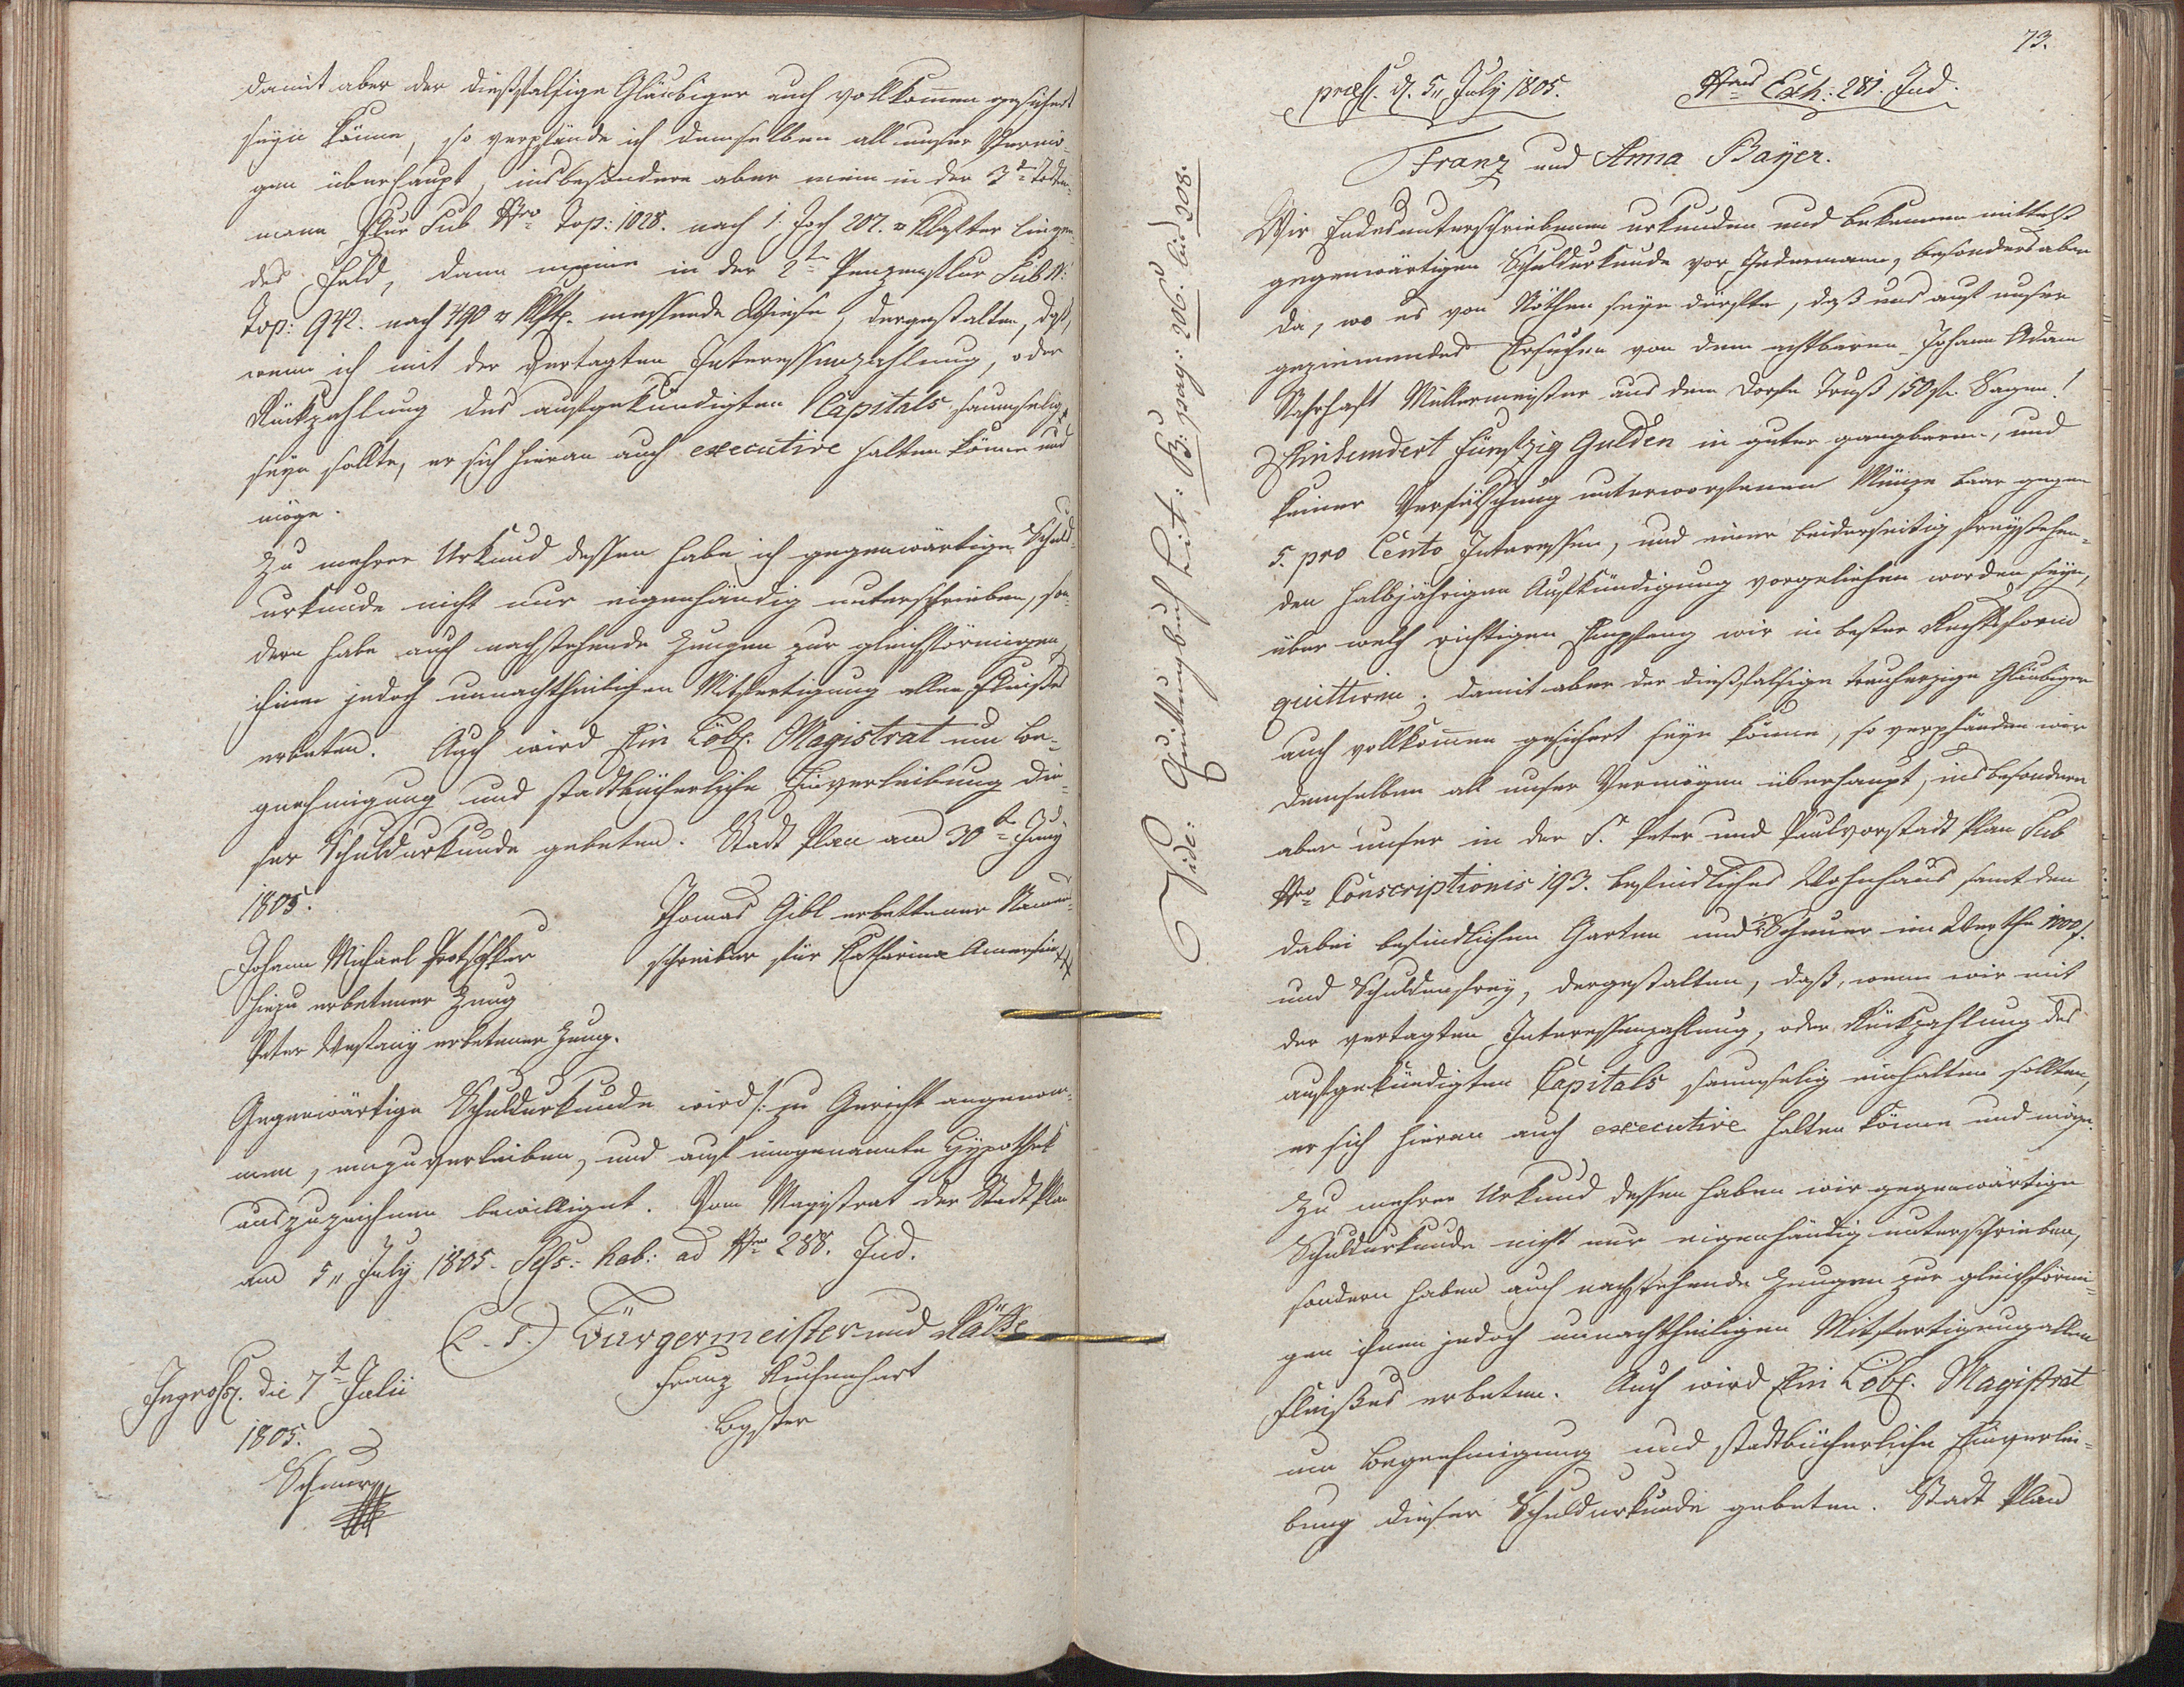 damit aber der dießfalsige Gläubiger auch vollkom̄en gesichert
seÿn könne, so verpfände ich demselben all unser Vermö-
gen überhaupt, insbesondere aber mein in der 3t Todten-
mann Flur Sub Nro Top: 1028. nach 1. Joch 207. □ Klafter liegen-
des Feld, dann meine in der 2ten Flur Sub N:
Top: 942. nach 490 □ Klft. messende Wiese, dergestalten, daß,
wenn ich mit der vertagten Interessenzahlung, oder
Rückzahlung des aufgekündigten Capitals saumselig
seÿn sollte, er sich hieran auch executive halten könne und
möge.
Zu mehrer Urkund dessen habe ich gegenwärtige Schuld-
urkunde nicht nur eigenhändig unterschrieben, son-
dern habe auch nachstehende Zeugen zur gleichförmigen
ihnen jedoch unnachtheilichen Mitfertigung allen Fleißes
erbeten. Auch wird Ein Löbl. Magistrat um Be-
gnehmigung und stadtbücherliche Einverleibung die-
ser Schuldurkunde gebeten. Stadt Plan am 30t Juny
1805.
Thomas Gibl erbettener Namen-
Johann Michael
schreiber für Katharina +++
hiezu erbetener Zeug
Peter erbetener Zeug.
Gegenwärtige Schuldurkunde wird /: zu Gericht angenom-
men, einzuverleiben, und auf inngenannte Hÿpothek
auszuzeichnen bewilliget. Vom Magistrat der Stadt Plan
am 5„ July 1805. Sess: hab: ad Nrum 288. Jud.
(L. S.) Bürgermeister und Räthe
Ingross. die 7t Julii
Franz
1805.
73.
præs. d. 5„ July 1805.
Nrus Exh: 281. Jud.
Franz und Anna Baÿer.
Vide: Quittungbuch Lit: B: pag: 206. bis 208.
Wir Endesunterschriebenen urkunden und bekennen mittelst
gegenwärtigen Schuldurkunde vor Jedermann, besonders aber
da, wo es von Nöthen seÿn dürfte, daß uns auf unser
geziemendes Ersuchen von dem achtbaren Johann Adam
Müllermeister aus dem Dorfe 150 fl. Sagen!
Einhundert fünfzig Gulden in guter gangbaren, und
keiner Verfälschung unterworfenen Münze baar gegen
5. pro Cento Interessen, und einer beiderseitig freÿstehen-
den halbjährigen Aufkündigung vorgeliehen worden seÿn,
über welch richtigen Empfang wir in bester Rechtsform
quittiren; damit aber der dießfalsige treuherzige Gläubiger
auch vollkom̄en gesichert seÿn könne, so verpfänden wir
demselben all unser Vermögen überhaupt, insbesondere
aber unser in der St Peter und Paulvorstadt Plan Sub
Nro Conscriptionis 193. befindliches Wohnhaus samt den
dabei befindlichen Garten und ½ Scheuer im Werthe
und Schuldenfreÿ, dergestalten, daß, wenn wir mit
der vertagten Interessenzahlung, oder Rückzahlung des
aufgekündigten Capitals saumselig einhalten sollten,
er sich hieran auch executive halten könne und möge.
Zu mehrer Urkund dessen haben wir gegenwärtige
Schuldurkunde nicht nur eigenhändig unterschrieben,
sondern haben auch nachstehende Zeugen zur gleichförmi-
gen ihnen jedoch unnachtheiligen Mitfertigung allen
Fleißes erbeten. Auch wird Ein Löbl. Magistrat
um Begnehmigung und stadtbücherliche Einverlei-
bung dieser Schuldurkunde gebeten. Stadt Plan